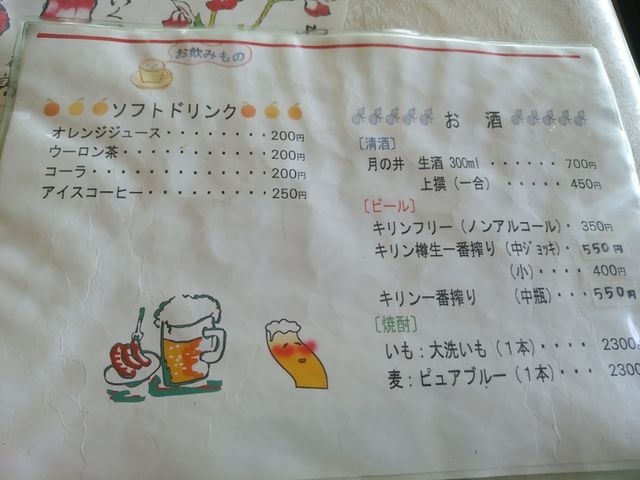 お飲みもの
ソフトドリンク
オレンジジュース・・・・・・・・200円
ウーロン茶・・・・・・・・・・・200円
コーラ・・・・・・・・・・・・・200円
アイスコーヒー・・・・・・・・・250円
お 酒
[清酒]
月の井 生酒 300ml ・・・・・・ 700円
上撰(一合) ・・・・・ 450円
[ビール]
キリンフリー(ノンアルコール)・ 350円
キリン樽生一番搾り(中ジョッキ)・ 550円
(小)・・・・ 400円
キリン一番搾り (中瓶)・・・・ 550円
[焼酎]
いも:大洗いも(1本)・・・・ 2300
麦:ピュアブルー(1本)・・・ 2300